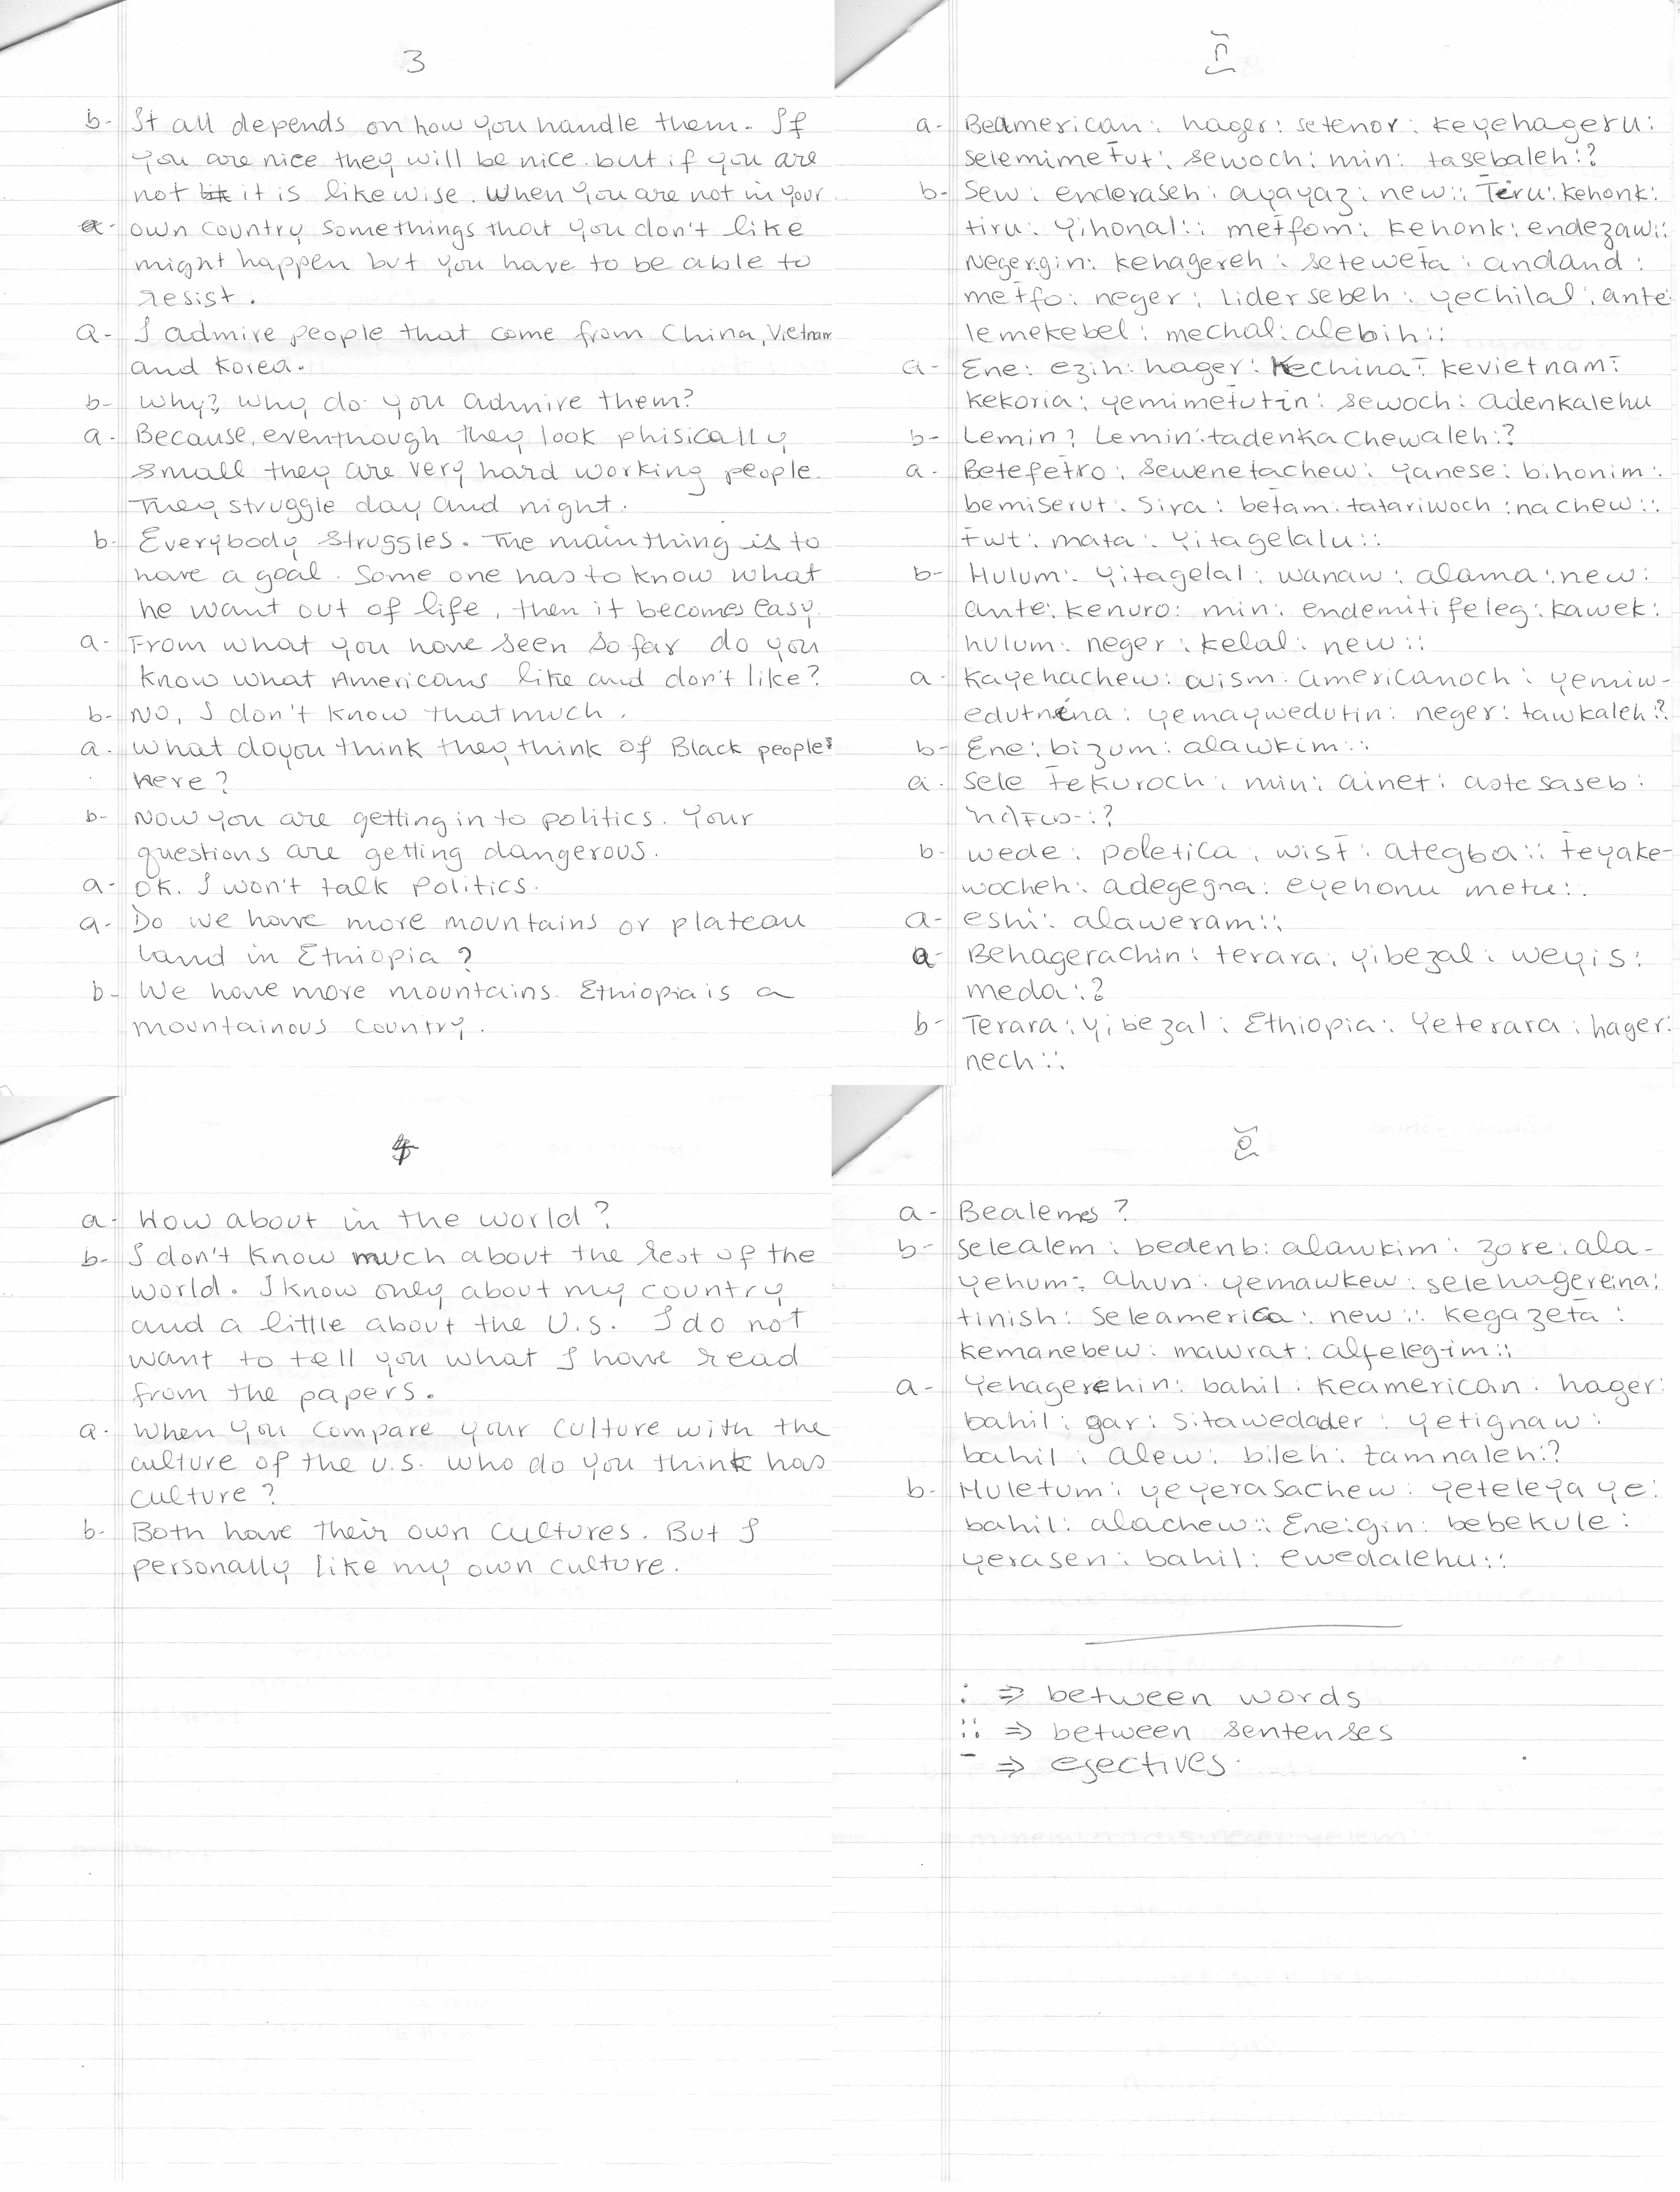 3
b- It all depends on how you handle them. If
you are nice they will be nice. but if you are
not it is likewise. When you are not in your
own country somethings that you don't like
might happen but you have to be able to
resist.
a- I admire people that come from China, Vietnam
and Korea.
b- Why? Why do you admire them?
a- Because, eventhough they look phisically
small they are very hard working people.
They struggle day and night.
b- Everybody struggles. The main thing is to
have a goal. Some one has to know what
he want out of life, then it becomes easy.
a- From what you have seen so far do you
know what Americans like and don't like?
b- No, I don't know that much.
a- What do you think they think of Black people
here?
b- Now you are getting in to politics. Your
questions are getting dangerous.
a- OK. I won't talk Politics.
a- Do we have more mountains or plateau
land in Ethiopia?
b- We have more mountains. Ethiopia is a
mountainous country.
a- Beamerican: hager: setenor: keyehageru:
selemimet̄ut: sewoch: min: tasebaleh:?
b- Sew: enderaseh: ayayaz: new:: T̄iru: kehonk:
tiru: yihonal:: met̄fom: kehonk: endezaw::
Neger:gin: kehagereh: seteweta: andand:
met̄fo: neger: lidersebeh: yechilal: ante
lemekebel: mechal: alebih::
a- Ene: ezih: hager: kechina: kevietnam:
kekoria: yemimet̄utin: sewoch: adenkalehu
b- Lemin? Lemin: tadenkachewaleh:?
a- Betefet̄ro: sewenetachew: yanese: bihonim:
bemiserut: sira: bet̄am: tatariwoch: nachew::
t̄wt: mata: yitagelalu::
b- Hulum: yitagelal: wanaw: alama: new:
ante: kenuro: min: endemitifeleg: kawek:
hulum: neger: kelal: new::
a- Kayehachew: aism: americanoch: yemiw-
edutnena: yemaywedutin: neger: tawkaleh:?
b- Ene: bizum: alawkim::
a- Sele t̄ekuroch: min: ainet: astesaseb:
አላቸው:?
b- wede: poletica: wist̄: ategba:: t̄eyake-
wocheh: adegegna: eyehonu metu::
a- eshi: alaweram::
a- Behagerachin: terara: yibezal: weyis:
meda:?
b- Terara: yibezal: Ethiopia: Yeterara: hager:
nech::
4
a- How about in the world?
b- I don't know much about the rest of the
world. I know only about my country
and a little about the U.S. I do not
want to tell you what I have read
from the papers.
a- When you compare your culture with the
culture of the U.S. who do you think has
culture?
b- Both have their own cultures. But I
personally like my own culture.
a- Bealemes?
b- selealem: bedenb: alawkim: zore: ala-
yehum: ahun: yemawkew: selehagerena:
tinish: seleamerica: new:: kegazet̄a:
kemanebew: mawrat: alfelegim::
a- Yehagerehin: bahil: keamerican: hager:
bahil: gar: sitawedader: yetignaw:
bahil: alew: bileh: tamnaleh:?
b- Huletum: yeyerasachew: yeteleyaye:
bahil: alachew:: Ene:gin: bebekule:
yerasen: bahil: ewedalehu::
: ⇒ between words
:: ⇒ between sentenses
- ⇒ ejectives